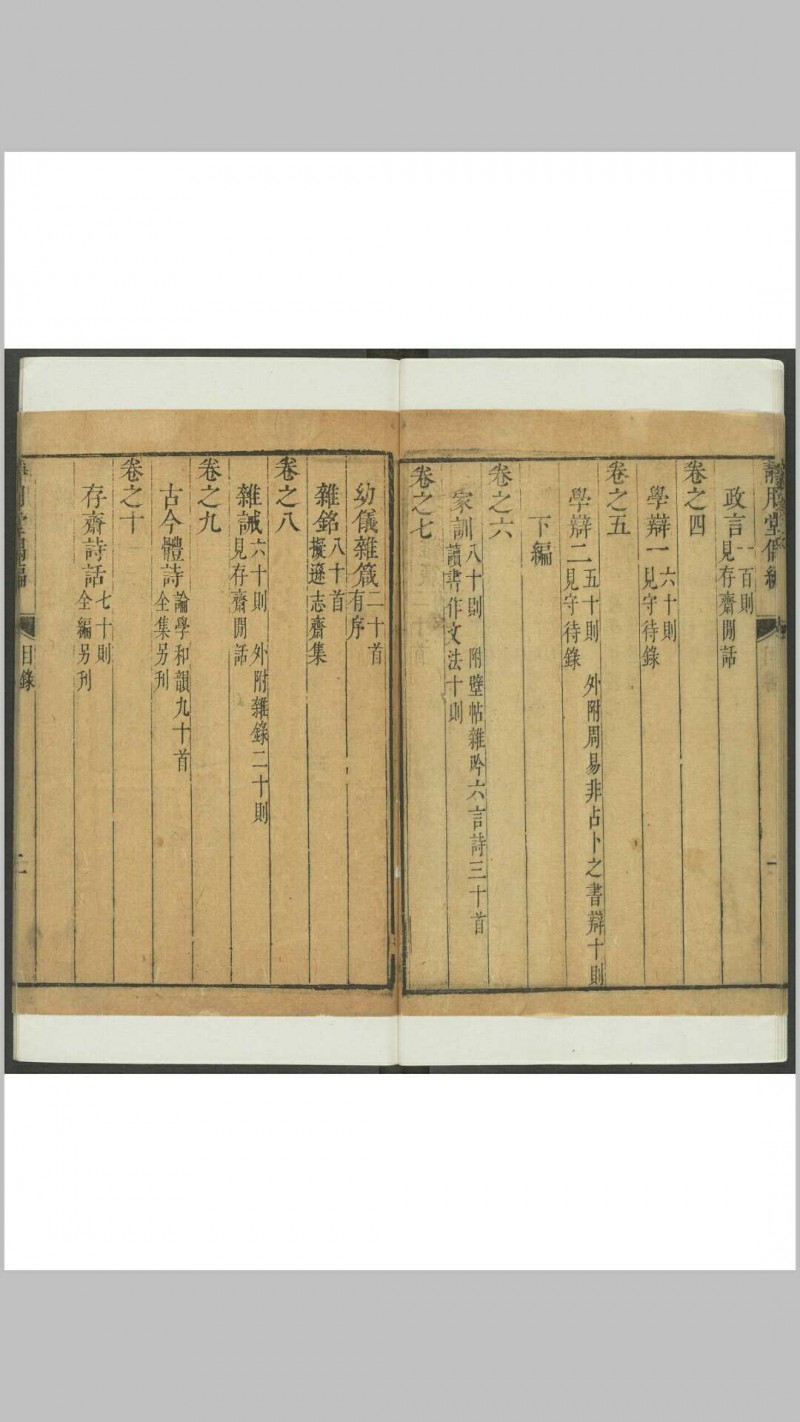 政言一百則見存齋閒話
卷之四
學辯一六十則見守待錄
卷之五
學辯二五十則見守待錄 外附周易非占卜之書辯十則
下編
卷之六
家訓八十則 附壁帖雜吟六言詩三十首讀書作文法十則
卷之七
幼儀雜箴二十首有序
雜銘八十首擬遜志齋集
卷之八
雜誡六十則 外附雜錄二十則見存齋閒話
卷之九
古今體詩論學和韻九十首全集另刊
卷之十
存齋詩話七十則全編另刊
目錄
二